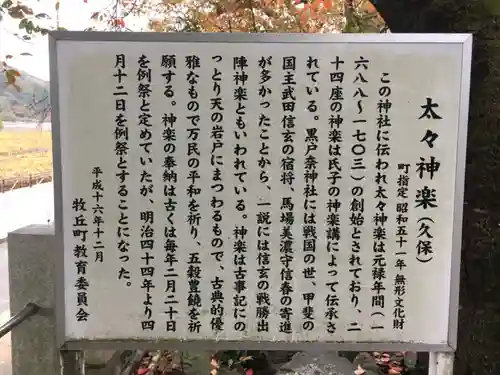 太々神楽(久保)
町指定 昭和五十一年 無形文化財
この神社に伝われ太々神楽は元禄年間(一
六八八~一七〇三)の創始とされており、二
十四座の神楽は氏子の神楽講によって伝承さ
れている。黒戸奈神社には戦国の世、甲斐の
国主武田信玄の宿将、馬場美濃守信春の寄進
が多かったことから、一説には信玄の戦勝出
陣神楽ともいわれている。神楽は古事記にの
っとり天の岩戸にまつわるもので、古典的優
雅なもので万民の平和を祈り、五穀豊饒を祈
願する。神楽の奉納は古くは毎年二月二十日
を例祭と定めていたが、明治四十四年より四
月十二日を例祭とすることになった。
平成十六年十二月
牧丘町教育委員会